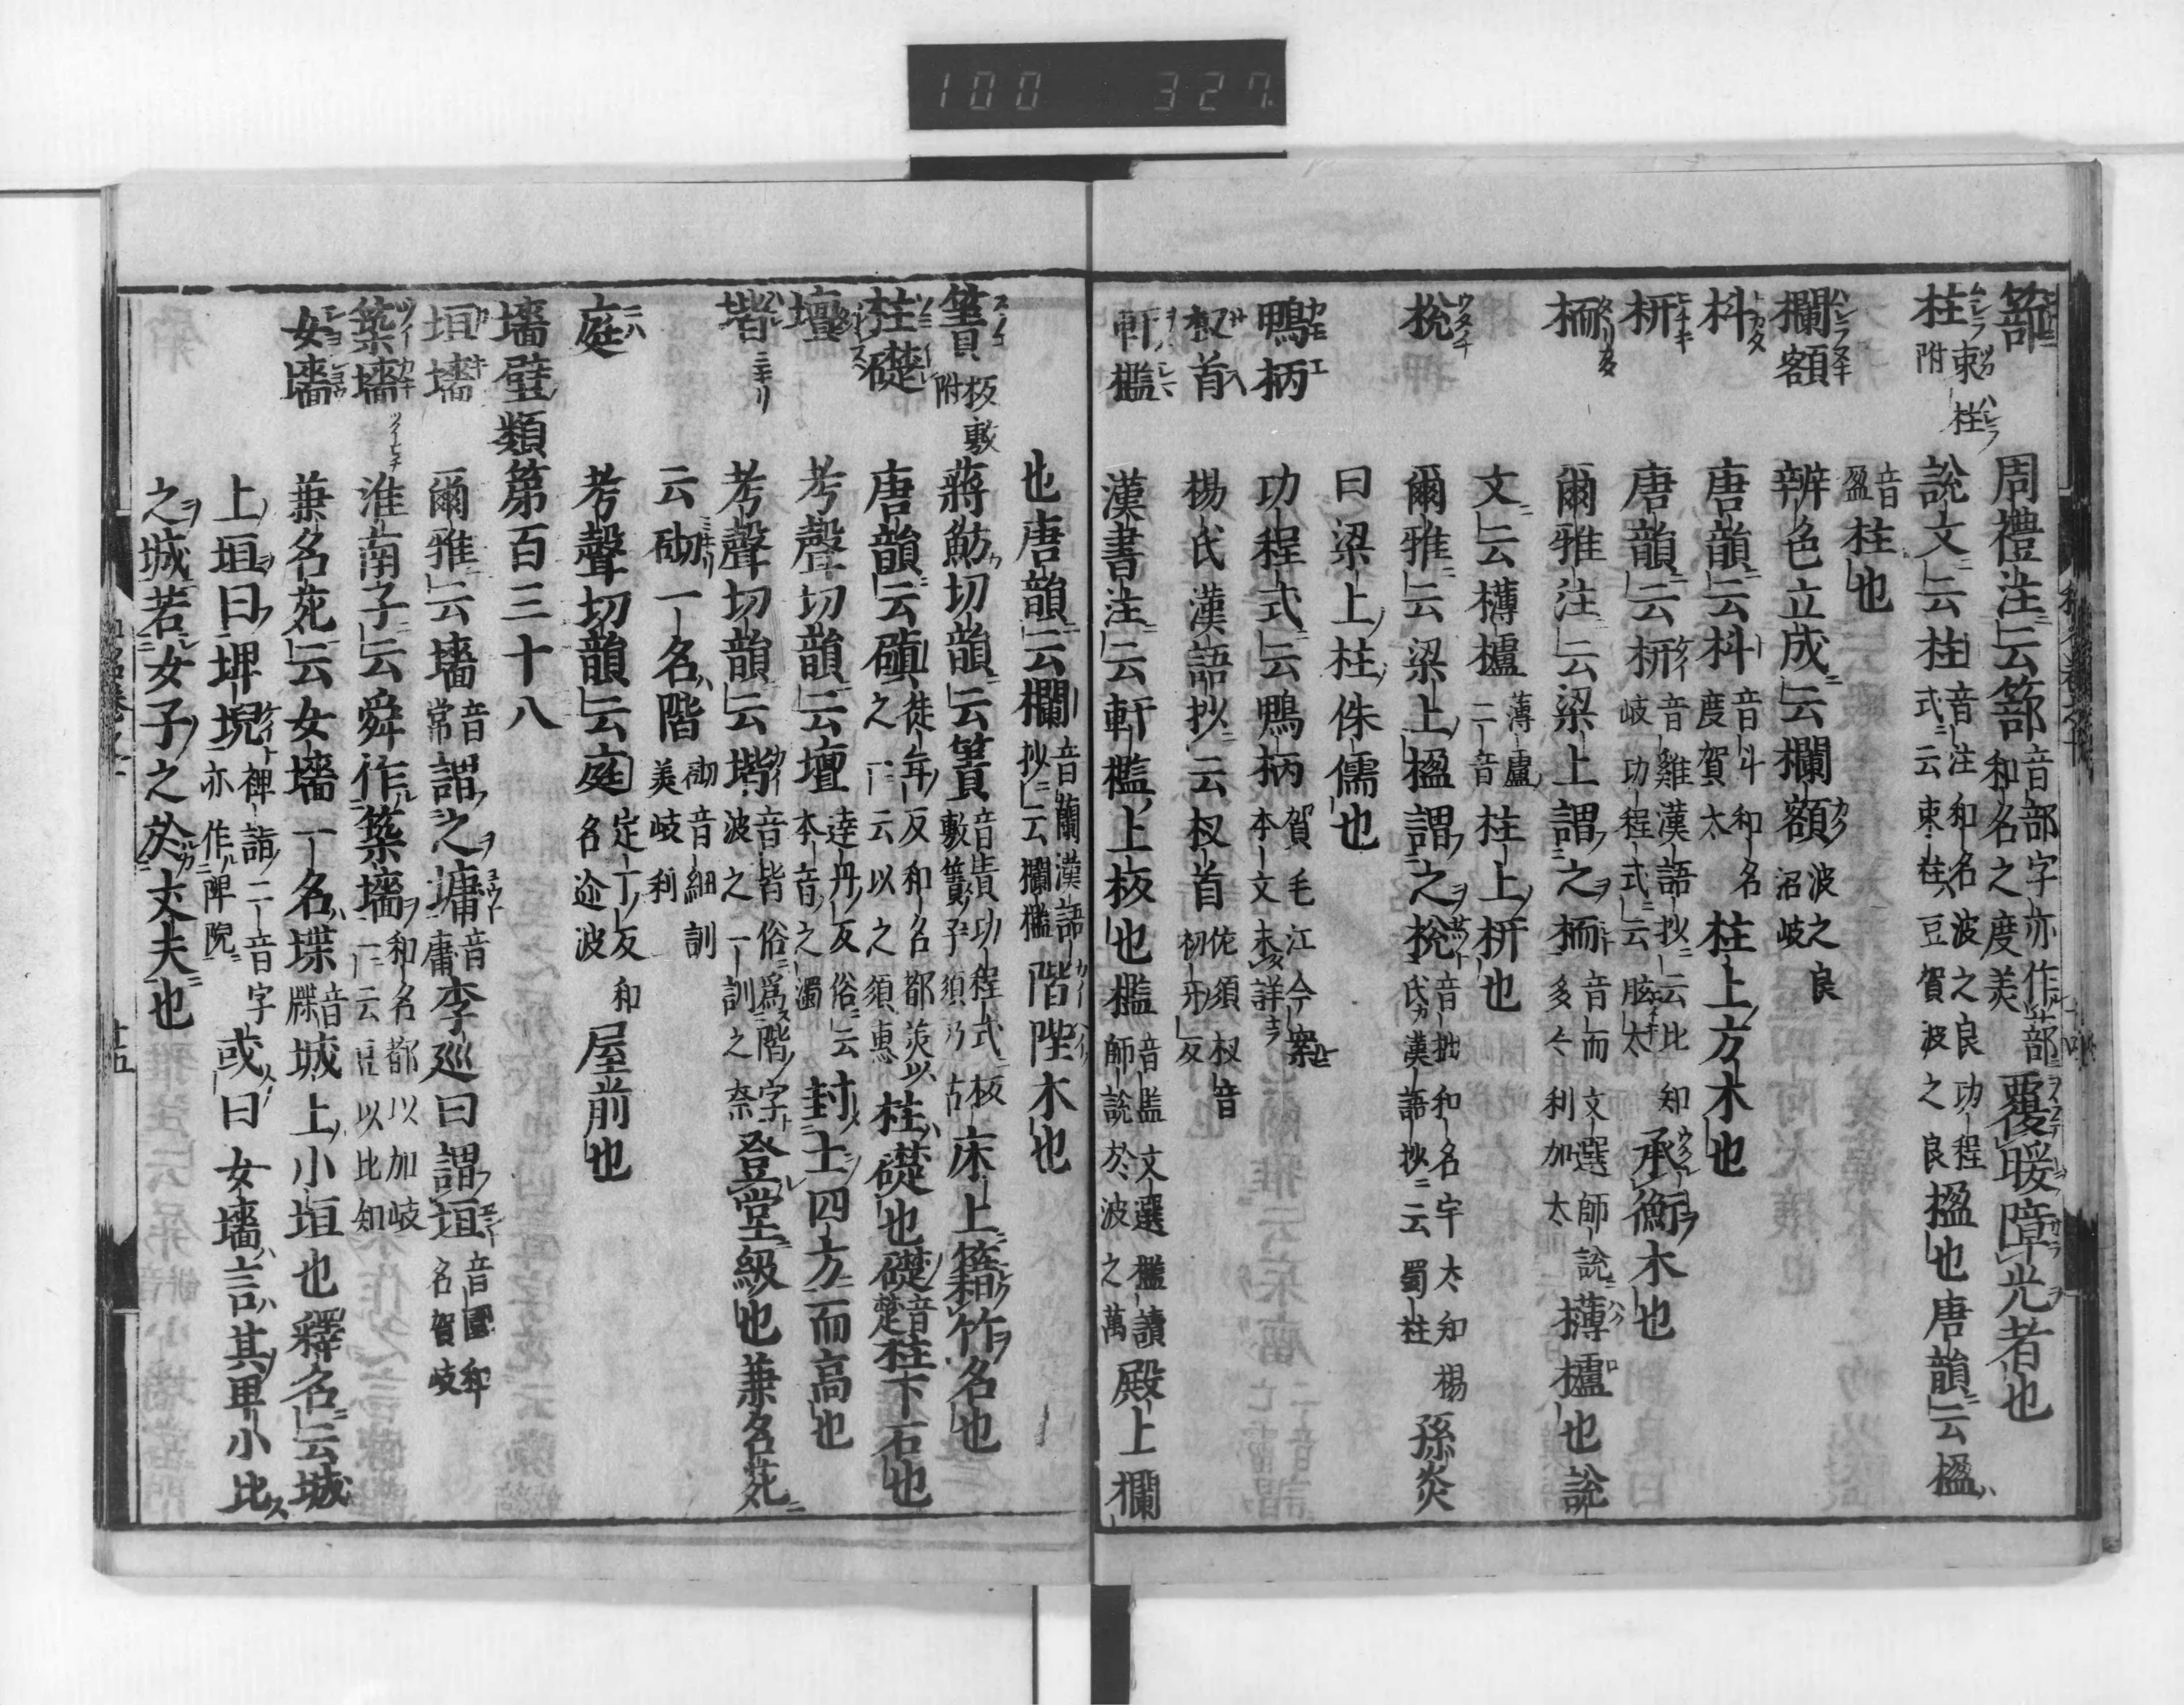 100 327
蔀 周禮注云蔀 音部字亦作䕒 和名之度美 覆暖障光者也
柱 束柱附 說文云柱 音注 和名波之良 功程式云束柱 豆賀波之良 楹也唐韻云楹
音盈 柱也
欄額 辨色立成云欄額 波之良沼岐
枓 唐韻云枓 音斗 和名度賀太 柱上方木也
枅 唐韻云枅 音雞 漢語抄云比知岐 功程式云肱木 承衡木也
栭 爾雅注云梁上謂之栭 音而 文選師說多々利加太 欂櫨也說
文云欂櫨 薄盧二音 柱上枅也
梲 爾雅云梁上楹謂之梲 音拙 和名宇太知 楊氏漢語抄云蜀柱 孫炎
曰梁上柱侏儒也
鴨柄 功程式云鴨柄 賀毛江今案本文未詳
杈首 楊氏漢語抄云杈首 佐須 杈音初牙反
軒檻 漢書注云軒檻上板也檻 音監 文選檻讀師說於波之萬 殿上欄
也唐韻云欄 音蘭 漢語抄云欄檻 階陛木也
簀 板敷附 蔣魴切韻云簀 音責 功程式板敷簀子須乃古 床上藉竹名也
柱礎 唐韻云磌 徒年反 和名都美以之 一云以之須惠 柱礎也礎 音楚 柱下石也
壇 考聲切韻云壇 達丹反 俗云本音之濁 封土四方而高也
堦 考聲切韻云堦 音皆 俗爲階字 波之一訓之奈 登堂級也兼名苑
云砌一名階 砌音細訓美岐利
庭 考聲切韻云庭 定丁反 和名迩波 屋前也
墻壁類第百三十八
垣墻 爾雅云墻 音常 謂之墉 音庸 李巡曰謂垣 音園 和名賀岐
築墻 淮南子云舜作築墻 和名都以加岐 一云豆以比知
女墻 兼名苑云女墻一名堞 音牒 城上小垣也釋名云城
上垣曰埤堄 裨詣二音字亦作陴院 或曰女墻言其卑小比
之城若女子之於丈夫也